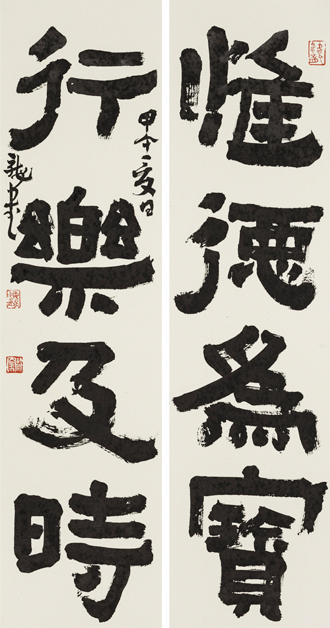 惟德為寶
行樂及時
甲午夏日